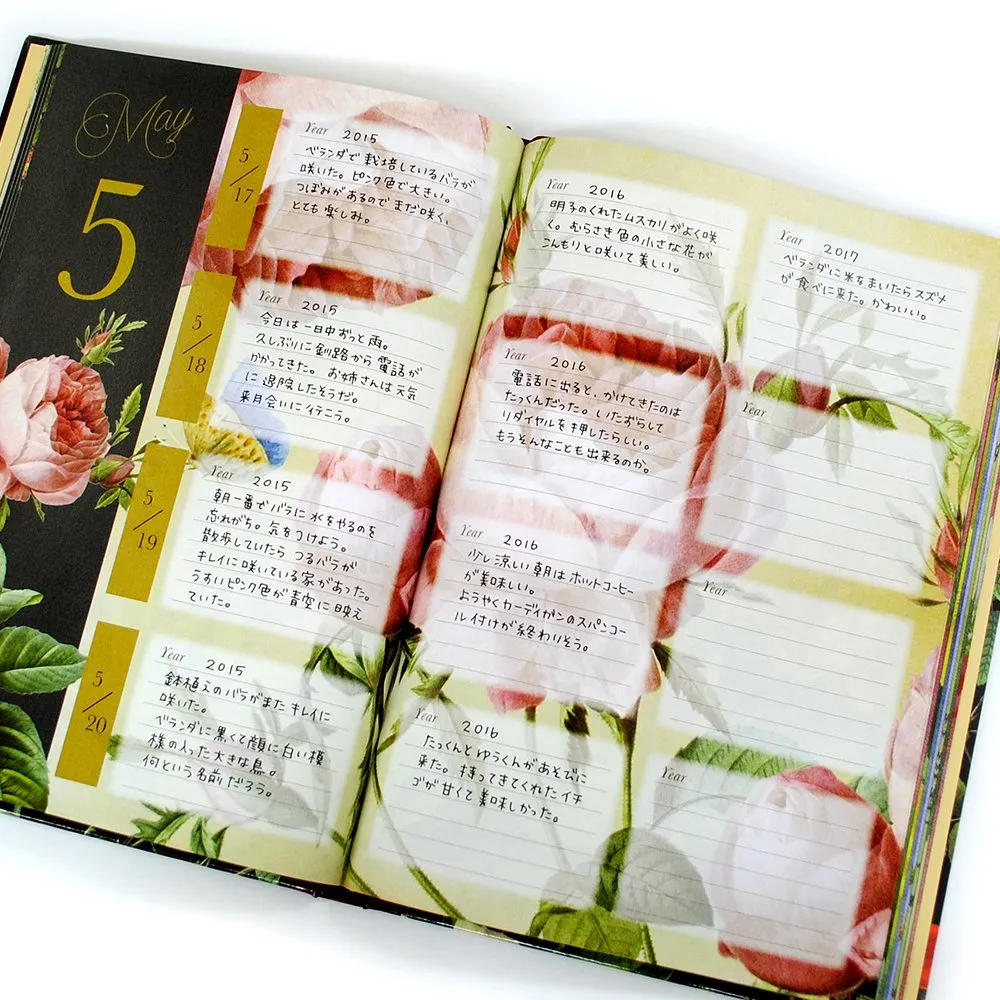 May
5
5/17
Year 2015
ベランダで栽培しているバラが
咲いた。ピンク色で大きい。
つぼみがあるのでまだ咲く、
とても楽しみ。
Year 2016
明子のくれたムスカリがよく咲
く。むらさき色の小さな花が
こんもりと咲いて美しい。
Year 2017
ベランダに米をまいたらスズメ
が食べに来た。かわいい。
5/18
Year 2015
今日は一日中おっと雨。
久しぶりに釧路から電話が
かかってきた。お姉さんは元気
に退院したそうだ。
来月会いにイテこう。
Year 2016
電話に出ると、かけてきたのは
たっくんだった。いたずらして
リダイヤルを押したらしい。
もうそんなことも出来るのか。
Year
5/19
Year 2015
朝一番でバラに水をやるのを
忘れがち。気をつけよう。
散歩していたらつるバラが
キレイに咲いている家があった。
うすいピンク色が青空に映え
ていた。
Year 2016
少し涼しい朝はホットコーヒー
が美味しい。
ようやくカーディガンのスパンコー
ル付けが終わりそう。
Year
5/20
Year 2015
鉢植えのバラがまたキレイに
咲いた。
ベランダに黒くて顔に白い模
様の入った大きな鳥。
何という名前だろう。
Year 2016
たっくんとゆうくんがあそびに
来た。持ってきてくれたイチ
ゴが甘くて美味しかった。
Year